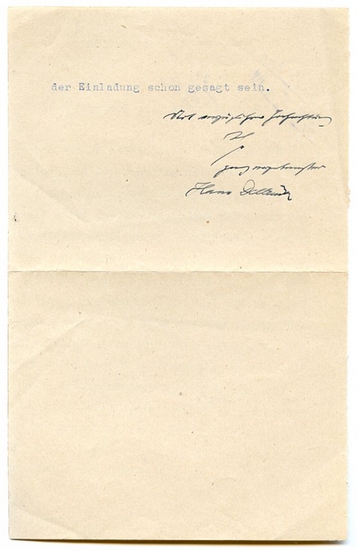 der Einladung schon gesagt sein.
Mit vorzüglicher Hochachtung
Ihr
ganz ergebenster
Hans